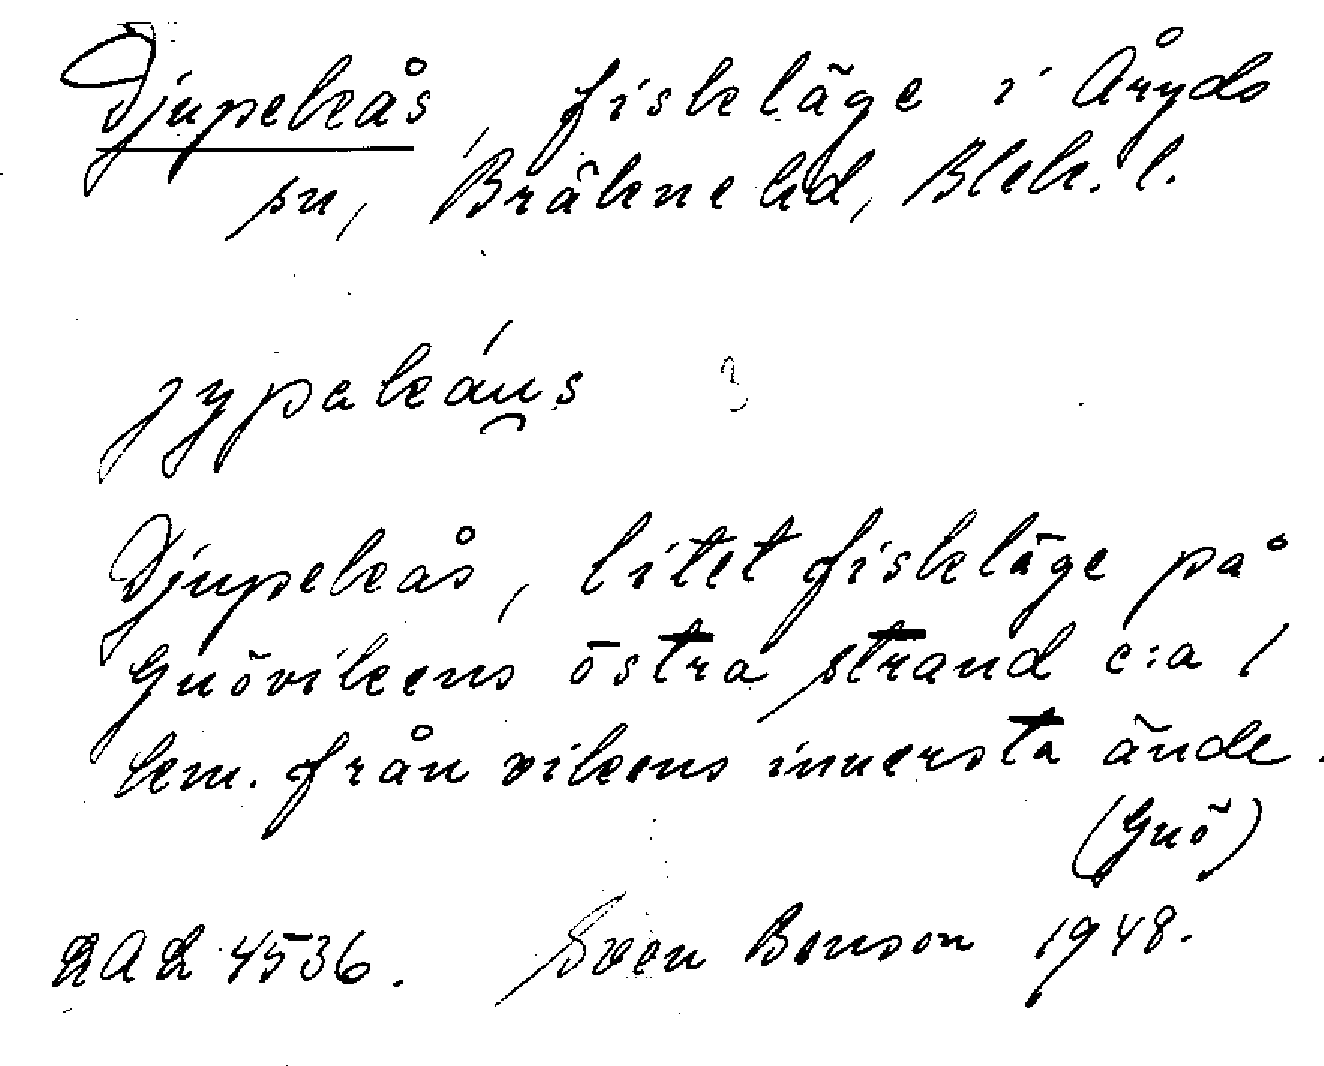 Djupekås, fiskläge i Åryds
sn, Bräkne hd, Blek. l.
jypekáu̯s
Djupekås, litet fiskläge på
Gnövikens östra strand c:a 1
km. från vikens innersta ände.
(Gnö)
LAL 4536. Sven Benson 1948.